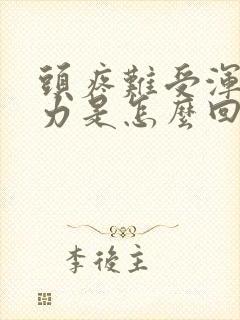 頭疼難受渾
力是怎麼回
李後主